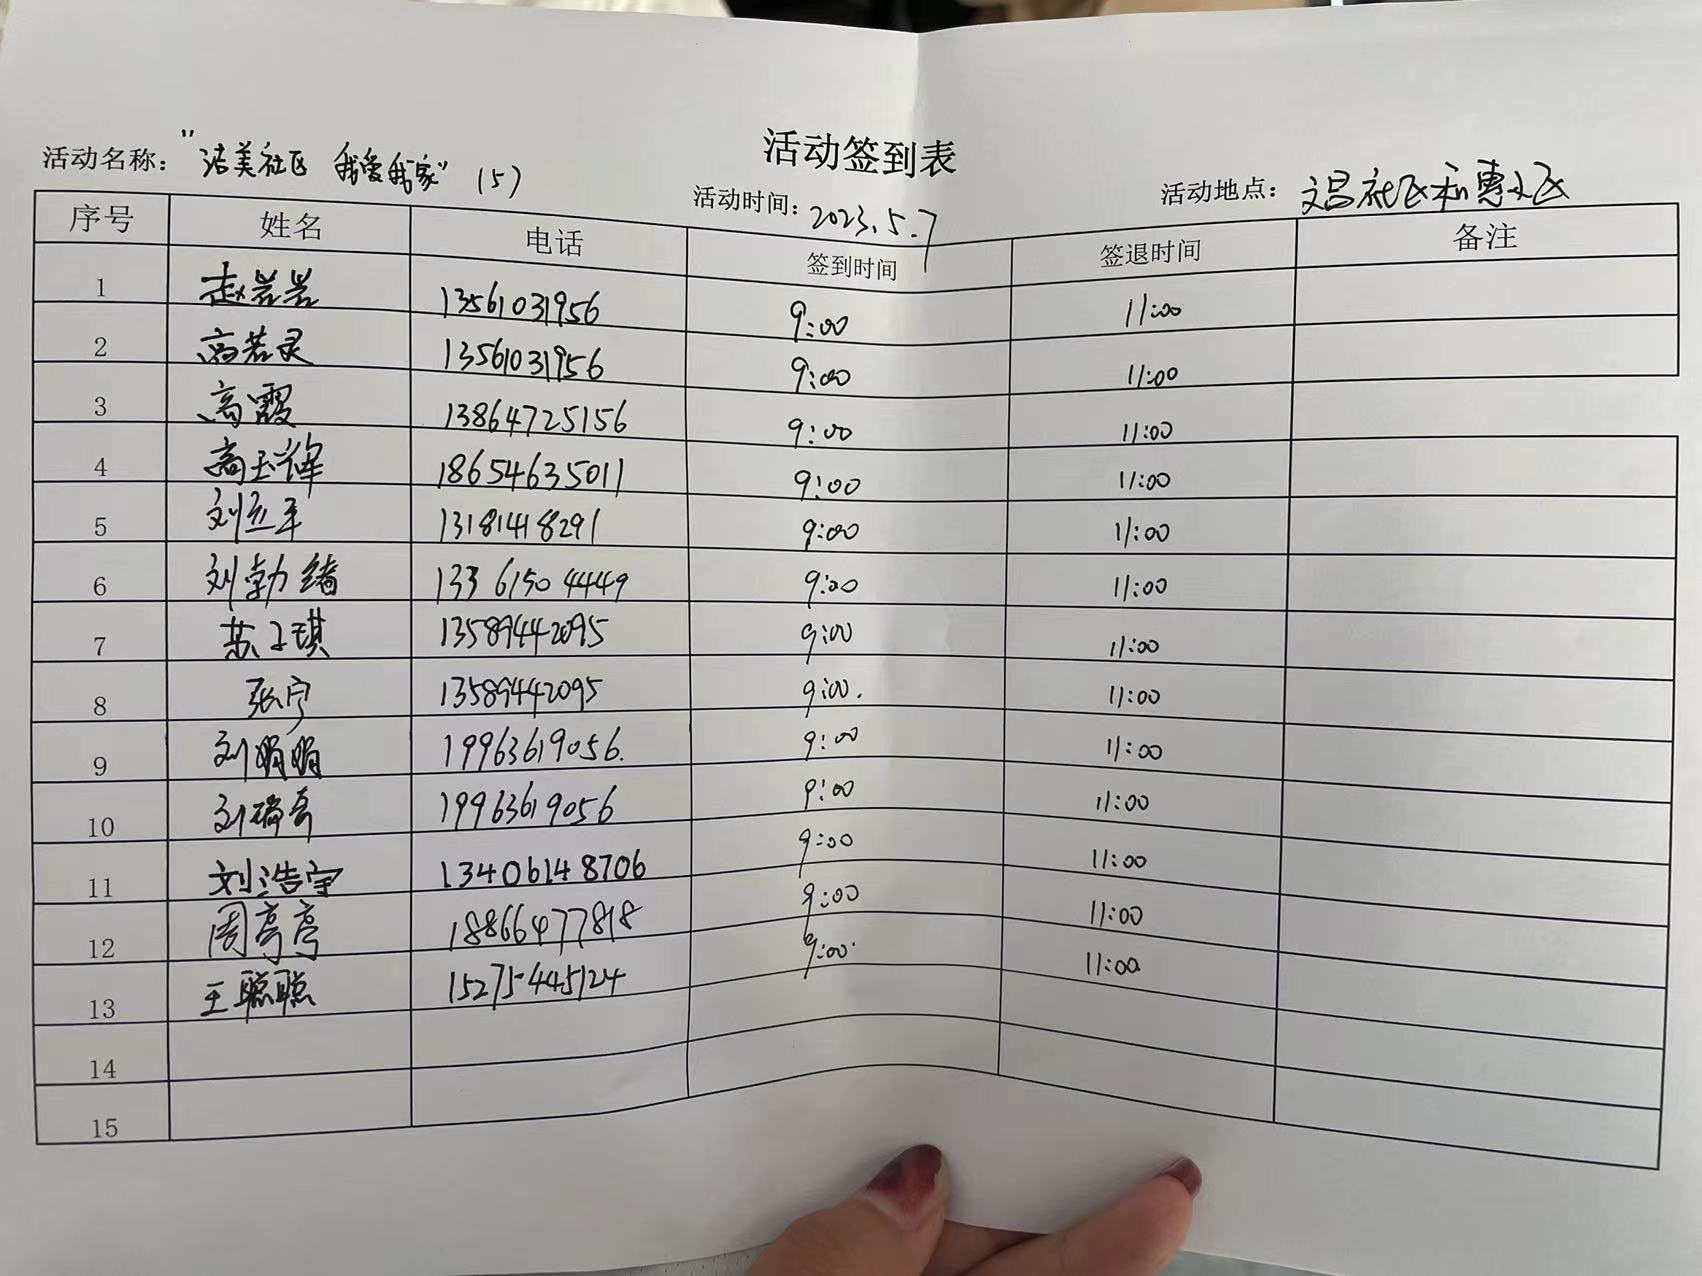 活动签到表
活动名称："洁美社区 我爱我家"（5）
活动时间：2023.5.7
活动地点：文昌社区和惠小区
序号 姓名 电话 签到时间 签退时间 备注
1 赵岩岩 13561031956 9:00 11:00
2 高若灵 13561031956 9:00 11:00
3 高霞 13864725156 9:00 11:00
4 高玉 18654635011 9:00 11:00
5 刘立军 13181418291 9:00 11:00
6 刘勃绪 13361504449 9:00 11:00
7 苏子琪 13589442095 9:00 11:00
8 张宁 13589442095 9:00. 11:00
9 刘娟娟 19963619056. 9:00 11:00
10 刘瑞奇 19963619056 9:00 11:00
11 刘浩宇 13406148706 9:00 11:00
12 周亭亭 18866477818 9:00 11:00
13 王聪聪 15275445124 9:00 11:00
14
15